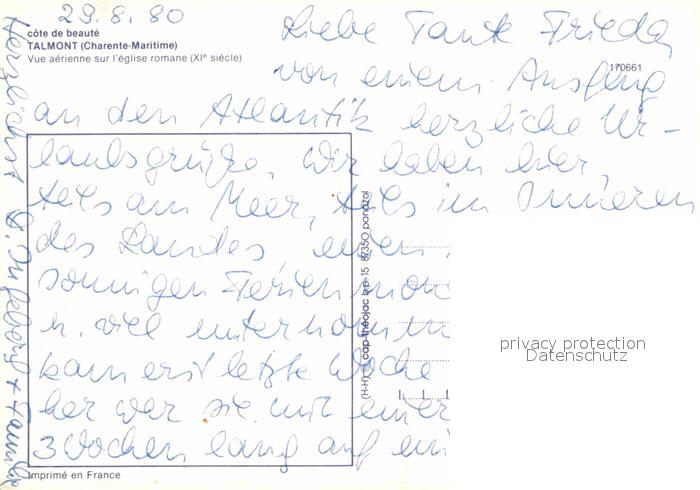 29.8.80
côte de beauté
TALMONT (Charente-Maritime)
Vue aérienne sur l'église romane (XIe siècle)
170661
Liebe Tante Frieda,
von einem Ausflug
an den Atlantik herzliche Ur-
laubsgrüße. Wir haben hier,
teils am Meer, teils im Inneren
des Landes, einen
sonnigen Ferienmon
u. viel unternomm
kam erst letzte Woche
her war sie mit einer
3 Wochen lang auf ein
Herzlichst + Familie
(H-H) © cap-théojac b.p. 15 87350 panazol
privacy protection
Datenschutz
Imprimé en France